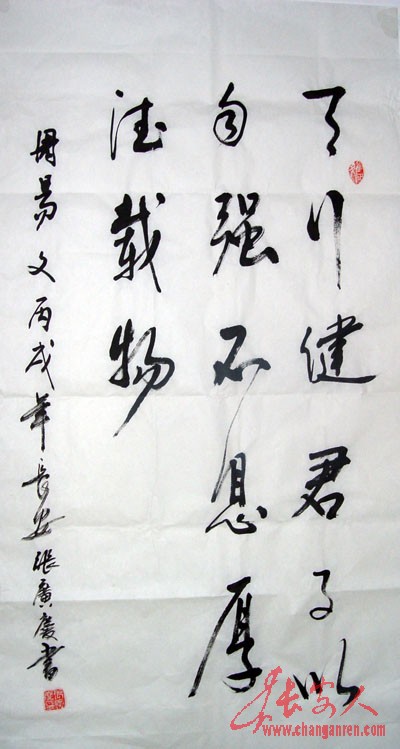 天行健君子以
自强不息厚
德载物
周易文丙戌年长安張廣慶書
长安人
www.changanren.com